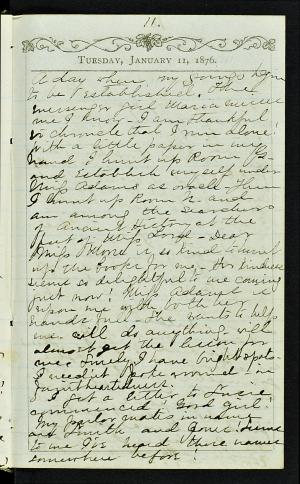 11.
TUESDAY, JANUARY 11, 1876.
A day when my
to be established. Three
messenger girl Maria
me I know - I am thankful
to chronicle that I run alone!
With a little paper in my
hand I hunt up Room
and Establish myself under
Miss Adams as well. Then
I hunt up Room and
am among the Searchers
of Ancient History at the
feet of Miss Lord - Dear
Miss Morse is so kind to hunt
up the books for me - Her kindness
seems so delightful to me coming
just now! Miss Adams is
upon me with both her
hands full - She wants to help
me. Will do anything - will
almost get the lesson for
me. Surely I have bright spots -
I needn't poke around in
faintheartedness.
I got a letter to Susie
commenced - Good girl!
My parlor mates in name
are Smith and Jones! Seems
to me I've heard these names
somewhere before!